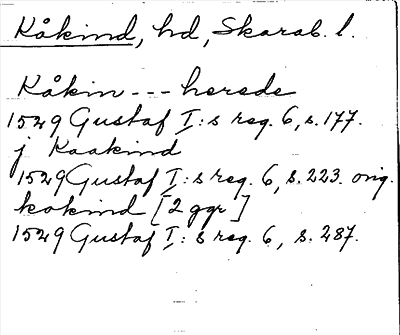 Kåkind, hd, Skarab. l.
Kåkin --- herede
1529 Gustaf I:s reg. 6, s. 177.
j Kaakind
1529 Gustaf I:s reg. 6, s. 223. orig.
kokind [2 ggr]
1529 Gustaf I:s reg. 6, s. 287.